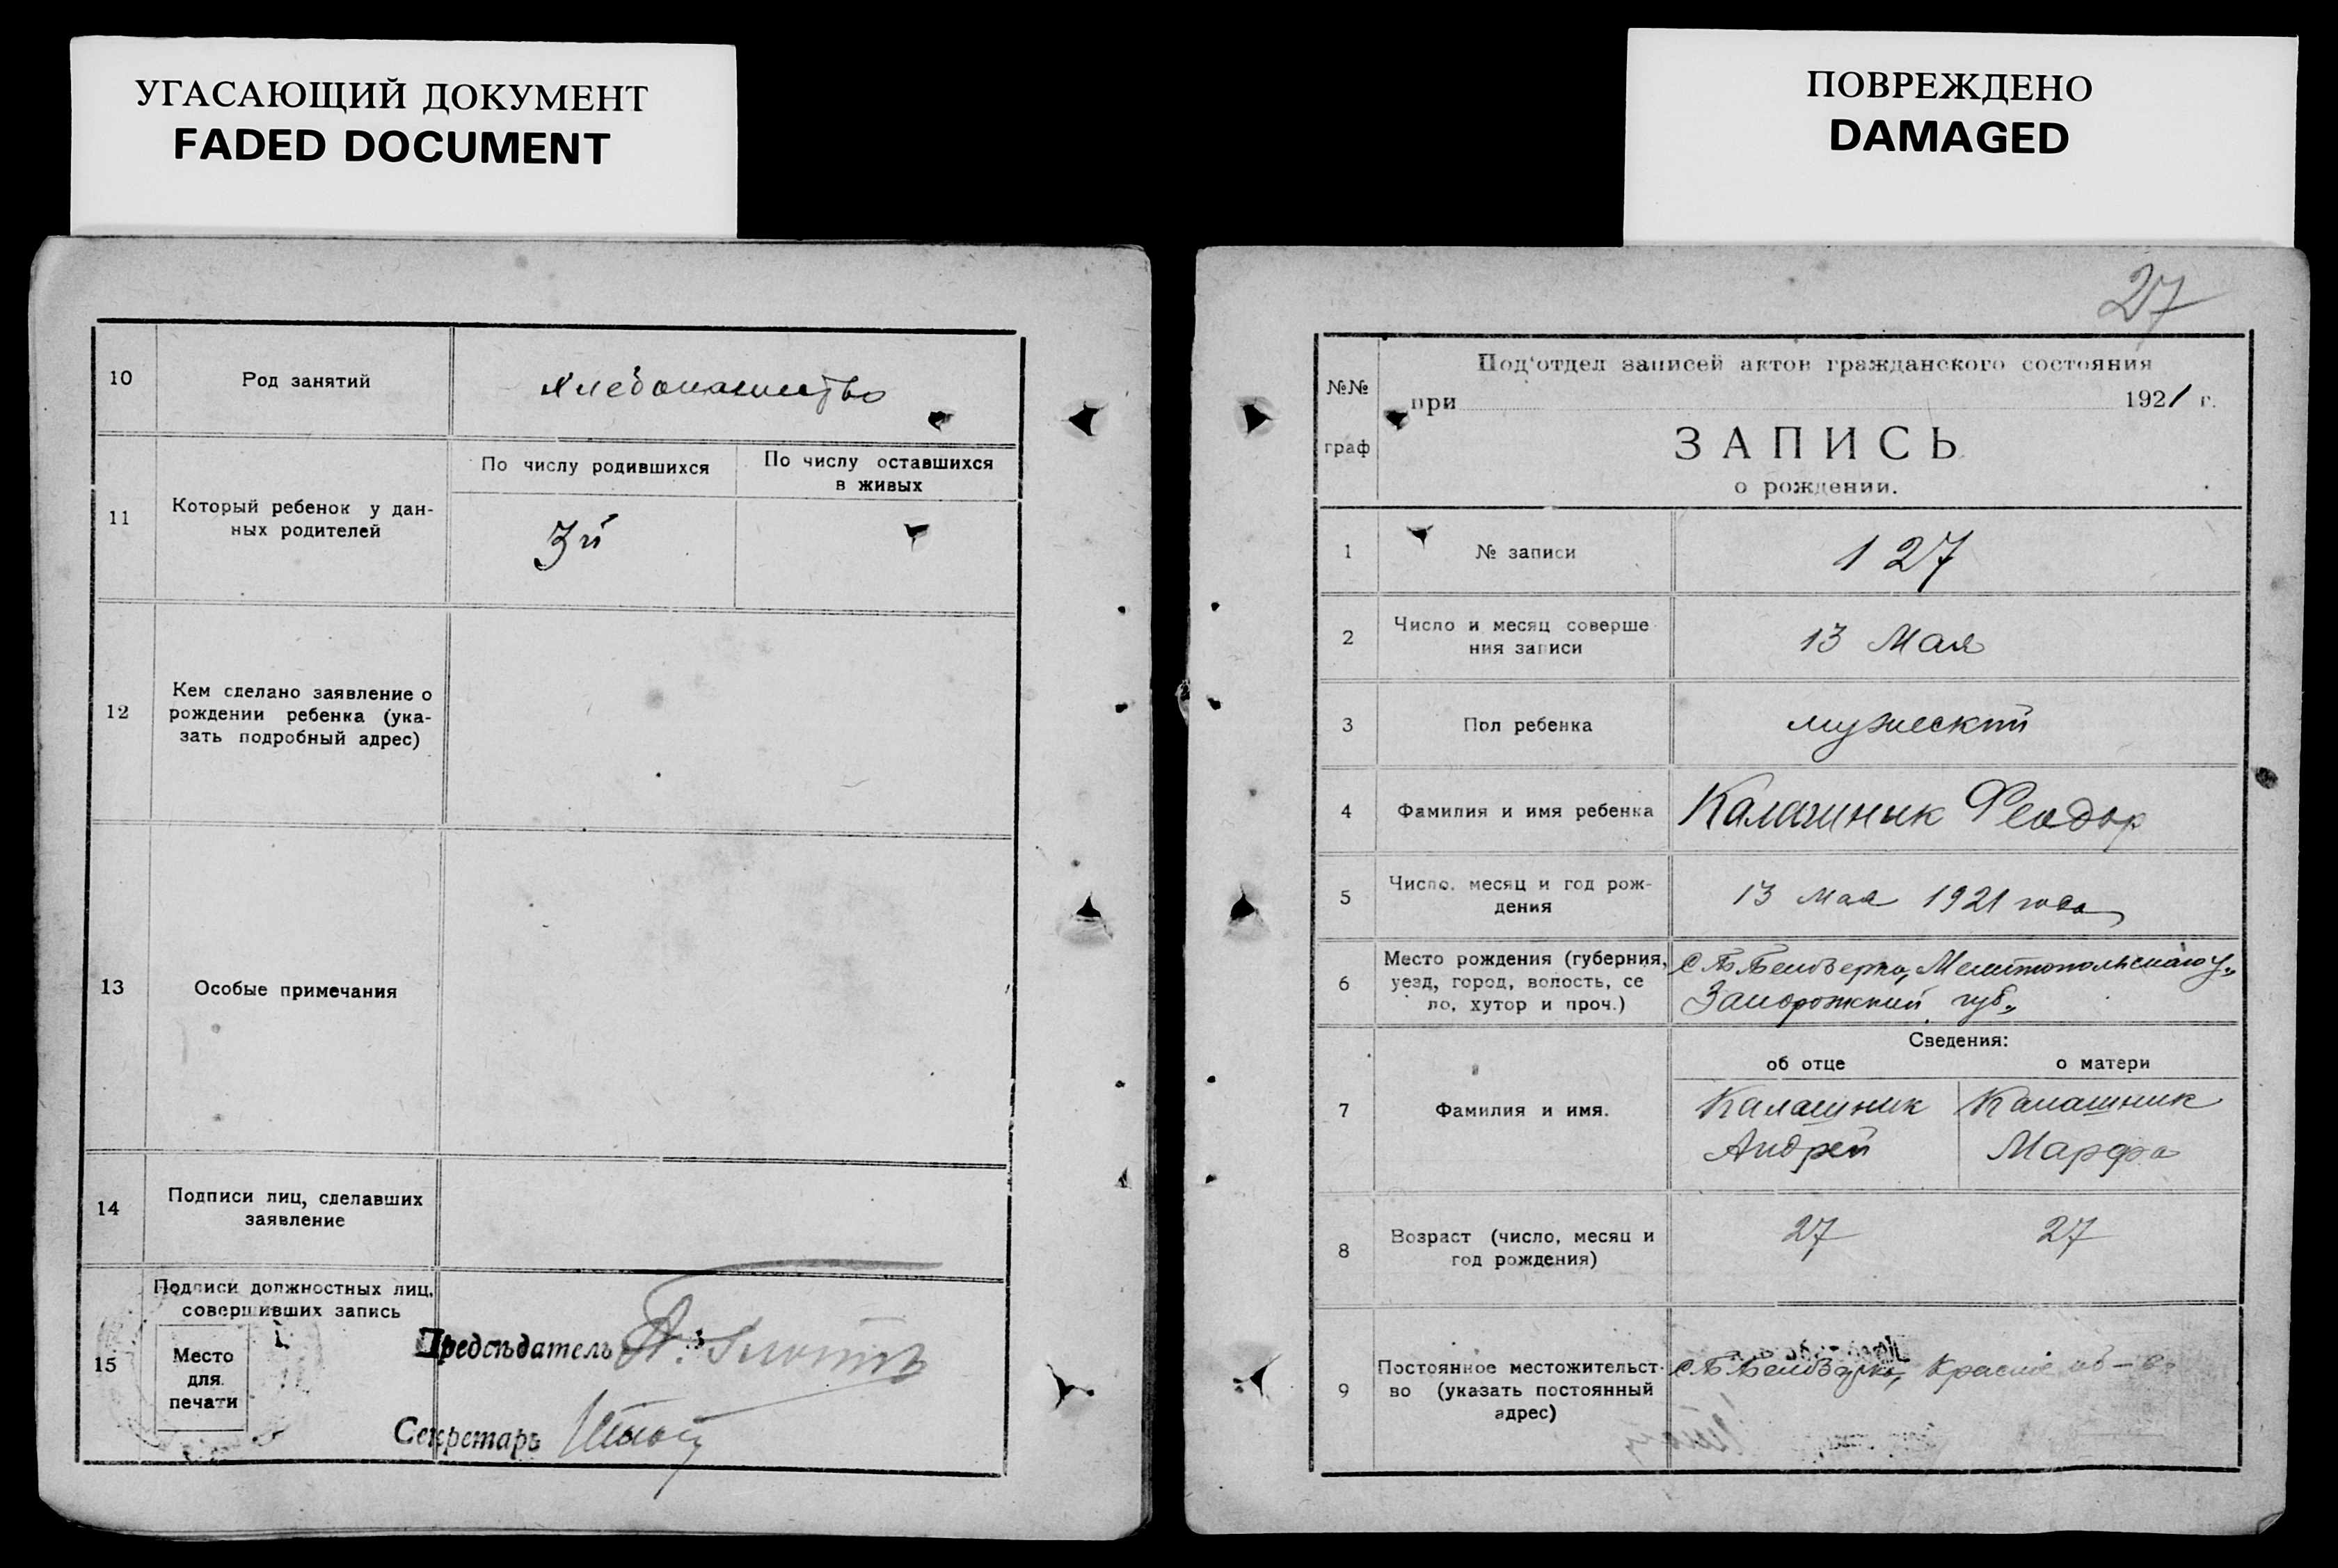 УГАСАЮЩИЙ ДОКУМЕНТ
FADED DOCUMENT
10
Род занятий
хлебопашество
11
Который ребенок у дан-
ных родителей
По числу родившихся
3й
По числу оставшихся
в живых
12
Кем сделано заявление о
рождении ребенка (ука-
зать подробный адрес)
13
Особые примечания
14
Подписи лиц, сделавших
заявление
15
Подписи должностных лиц,
совершивших запись
Место
для
печати
Предсѣдатель
Секретарь
ПОВРЕЖДЕНО
DAMAGED
27
№№
граф
Под'отдел записей актов гражданского состояния
при 1921 г.
ЗАПИСЬ
о рождении.
1
№ записи
127
2
Число и месяц соверше
ния записи
13 Мая
3
Пол ребенка
мужеский
4
Фамилия и имя ребенка
Калашник Феодор
5
Число, месяц и год рож-
дения
13 мая 1921 года
6
Место рождения (губерния,
уезд, город, волость, се
ло, хутор и проч.)
с Б Белозерка, Мелитопольскаго у.,
Запорожский губ.,
Сведения:
об отце
о матери
7
Фамилия и имя.
Калашник
Андрей
Калашник
Марфа
8
Возраст (число, месяц и
год рождения)
27
27
9
Постоянное местожительст-
во (указать постоянный
адрес)
с Б Белозерка,